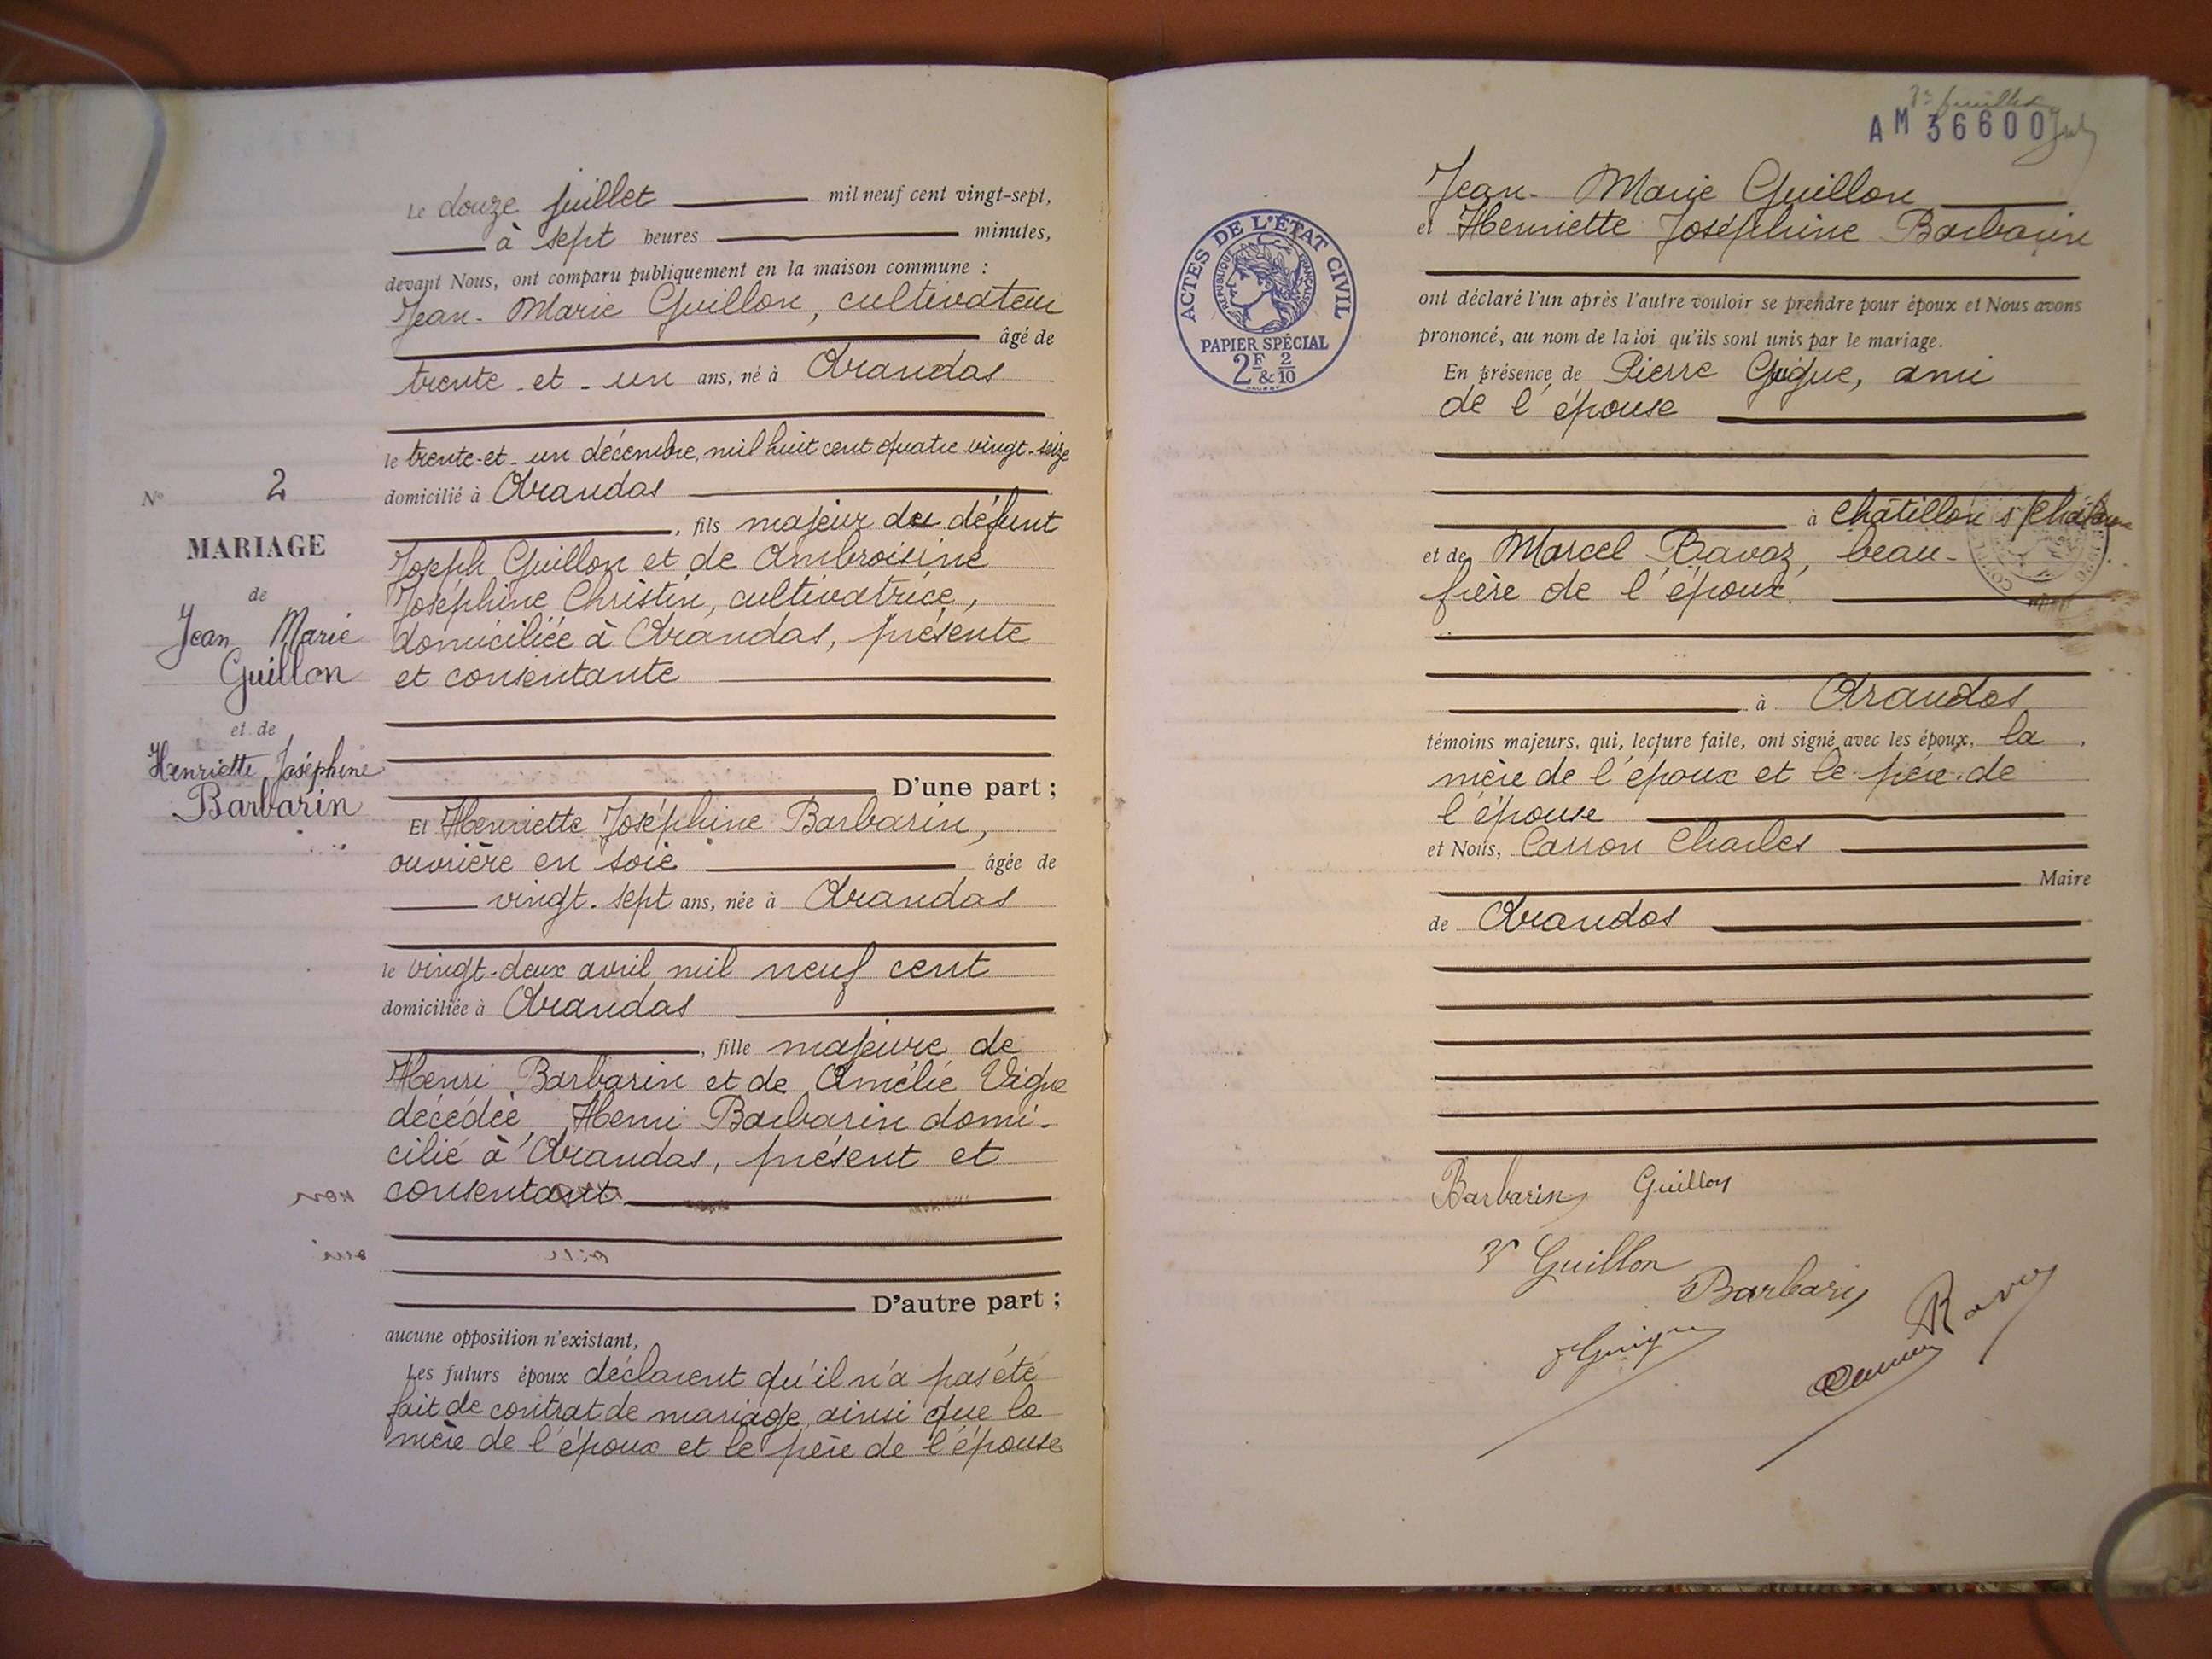 Le douze juillet mil neuf cent vingt-sept,
à sept heures minutes,
devant Nous, ont comparu publiquement en la maison commune :
Jean-Marie Guillon, cultivateur
âgé de
trente-et-un ans, né à Arandas
le trente-et-un décembre, mil huit cent quatre vingt-seize
domicilié à Arandas
, fils majeur du défunt
Joseph Guillon et de Ambroisine
Joséphine Christin, cultivatrice,
domiciliée à Arandas, présente
et consentante
D'une part ;
Nº 2
MARIAGE
de
Jean Marie
Guillon
et de
Henriette Joséphine
Barbarin
Et Henriette Joséphine Barbarin,
ouvrière en soie âgée de
vingt-sept ans, née à Arandas
le vingt-deux avril mil neuf cent
domiciliée à Arandas
, fille majeure de
Henri Barbarin et de Amélie
décédée, Henri Barbarin domi-
cilié à Arandas, présent et
consentant
D'autre part ;
aucune opposition n'existant,
Les futurs époux déclarent qu'il n'a pas été
fait de contrat de mariage, ainsi que la
mère de l'époux et le père de l'épouse
AM 36600
Jean-Marie Guillon
et Henriette Joséphine Barbarin
ACTES DE L'ÉTAT CIVIL
RÉPUBLIQUE FRANÇAISE
PAPIER SPÉCIAL
2F & 2/10
ont déclaré l'un après l'autre vouloir se prendre pour époux et Nous avons
prononcé, au nom de la loi qu'ils sont unis par le mariage.
En présence de Pierre Guigue, ami
de l'épouse
à Châtillon s/
et de Marcel Ravaz, beau-
frère de l'époux
à Arandas
témoins majeurs, qui, lecture faite, ont signé avec les époux, la
mère de l'époux et le père de
l'épouse
et Nous, Carron Charles
Maire
de Arandas
Barbarin Guillon
Vve Guillon
Barbarin
Guigue